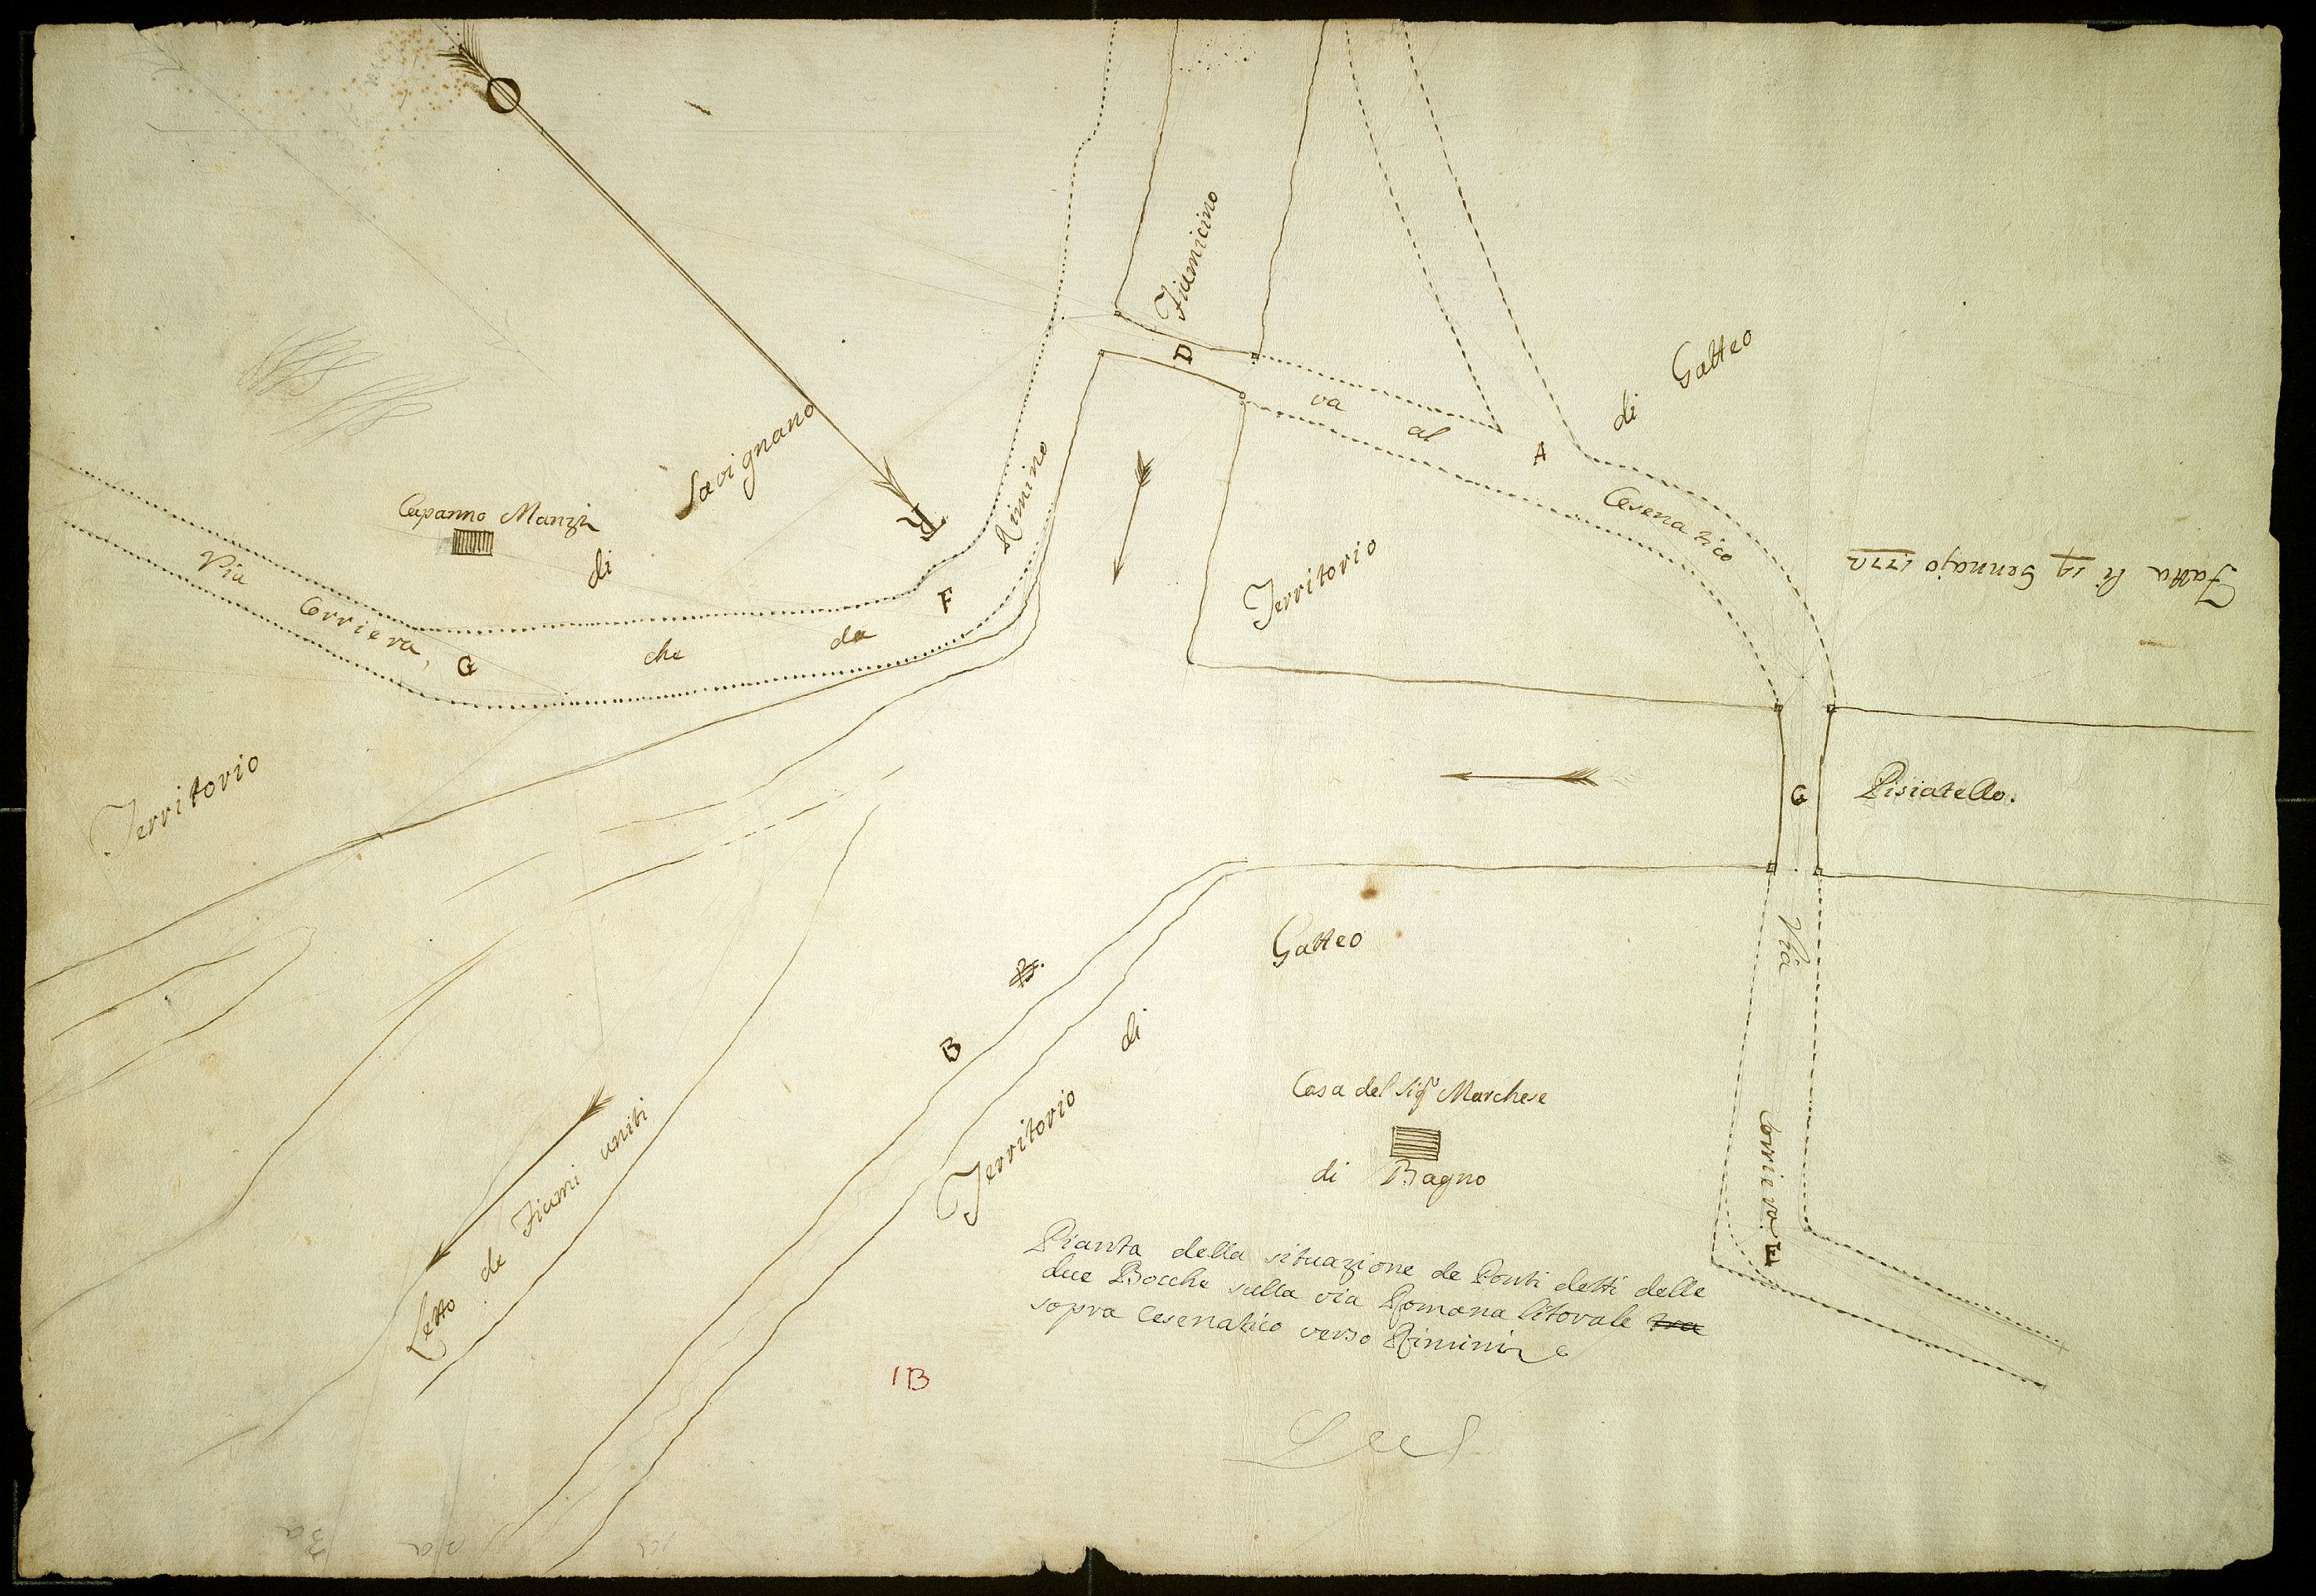 Fiumicino
D
va
al
A
Cesenatico
di Gatteo
Savignano
di
Capanno Manzi
Rimino
F
da
che
G
Via
Corriera,
Territorio
Territorio
Fatta li 19 Gennajo 1772
G
Pisiatello.
Via
Corriera
E
Gatteo
di
Territorio
B.
B
Casa del Sigr Marchese
di Bagno
Letto de Fiumi uniti
Pianta della situazione de Ponti detti delle
due Bocche sulla via Romana litorale tra
sopra Cesenatico verso Rimini
1B
3a
2a
1a